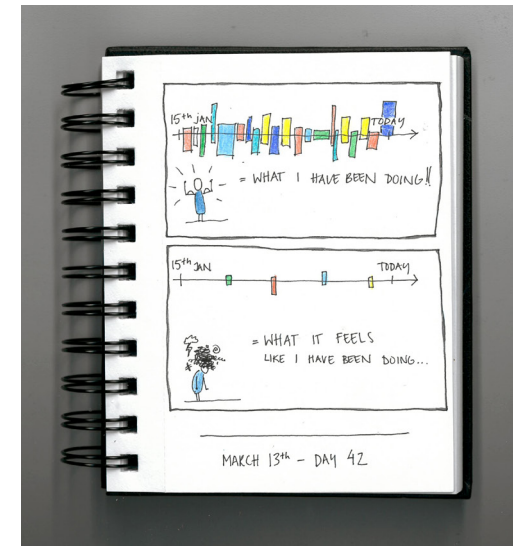 15th JAN
TODAY
= WHAT I HAVE BEEN DOING!!
15th JAN
TODAY
= WHAT IT FEELS
LIKE I HAVE BEEN DOING...
MARCH 13th - DAY 42